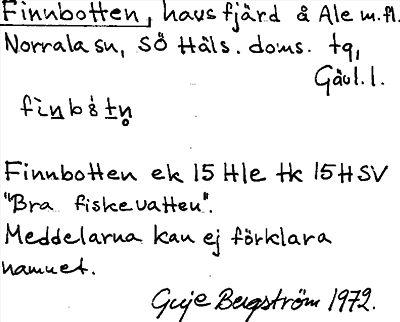 Finnbotten, havsfjärd å Ale m.fl.
Norrala sn, SÖ Häls. doms. tg,
Gävl. l.
fìnbåtn̥
Finnbotten ek 15 Hle tk 15 H SV
"Bra fiskevatten".
Meddelarna kan ej förklara
namnet.
Guje Bergström 1972.